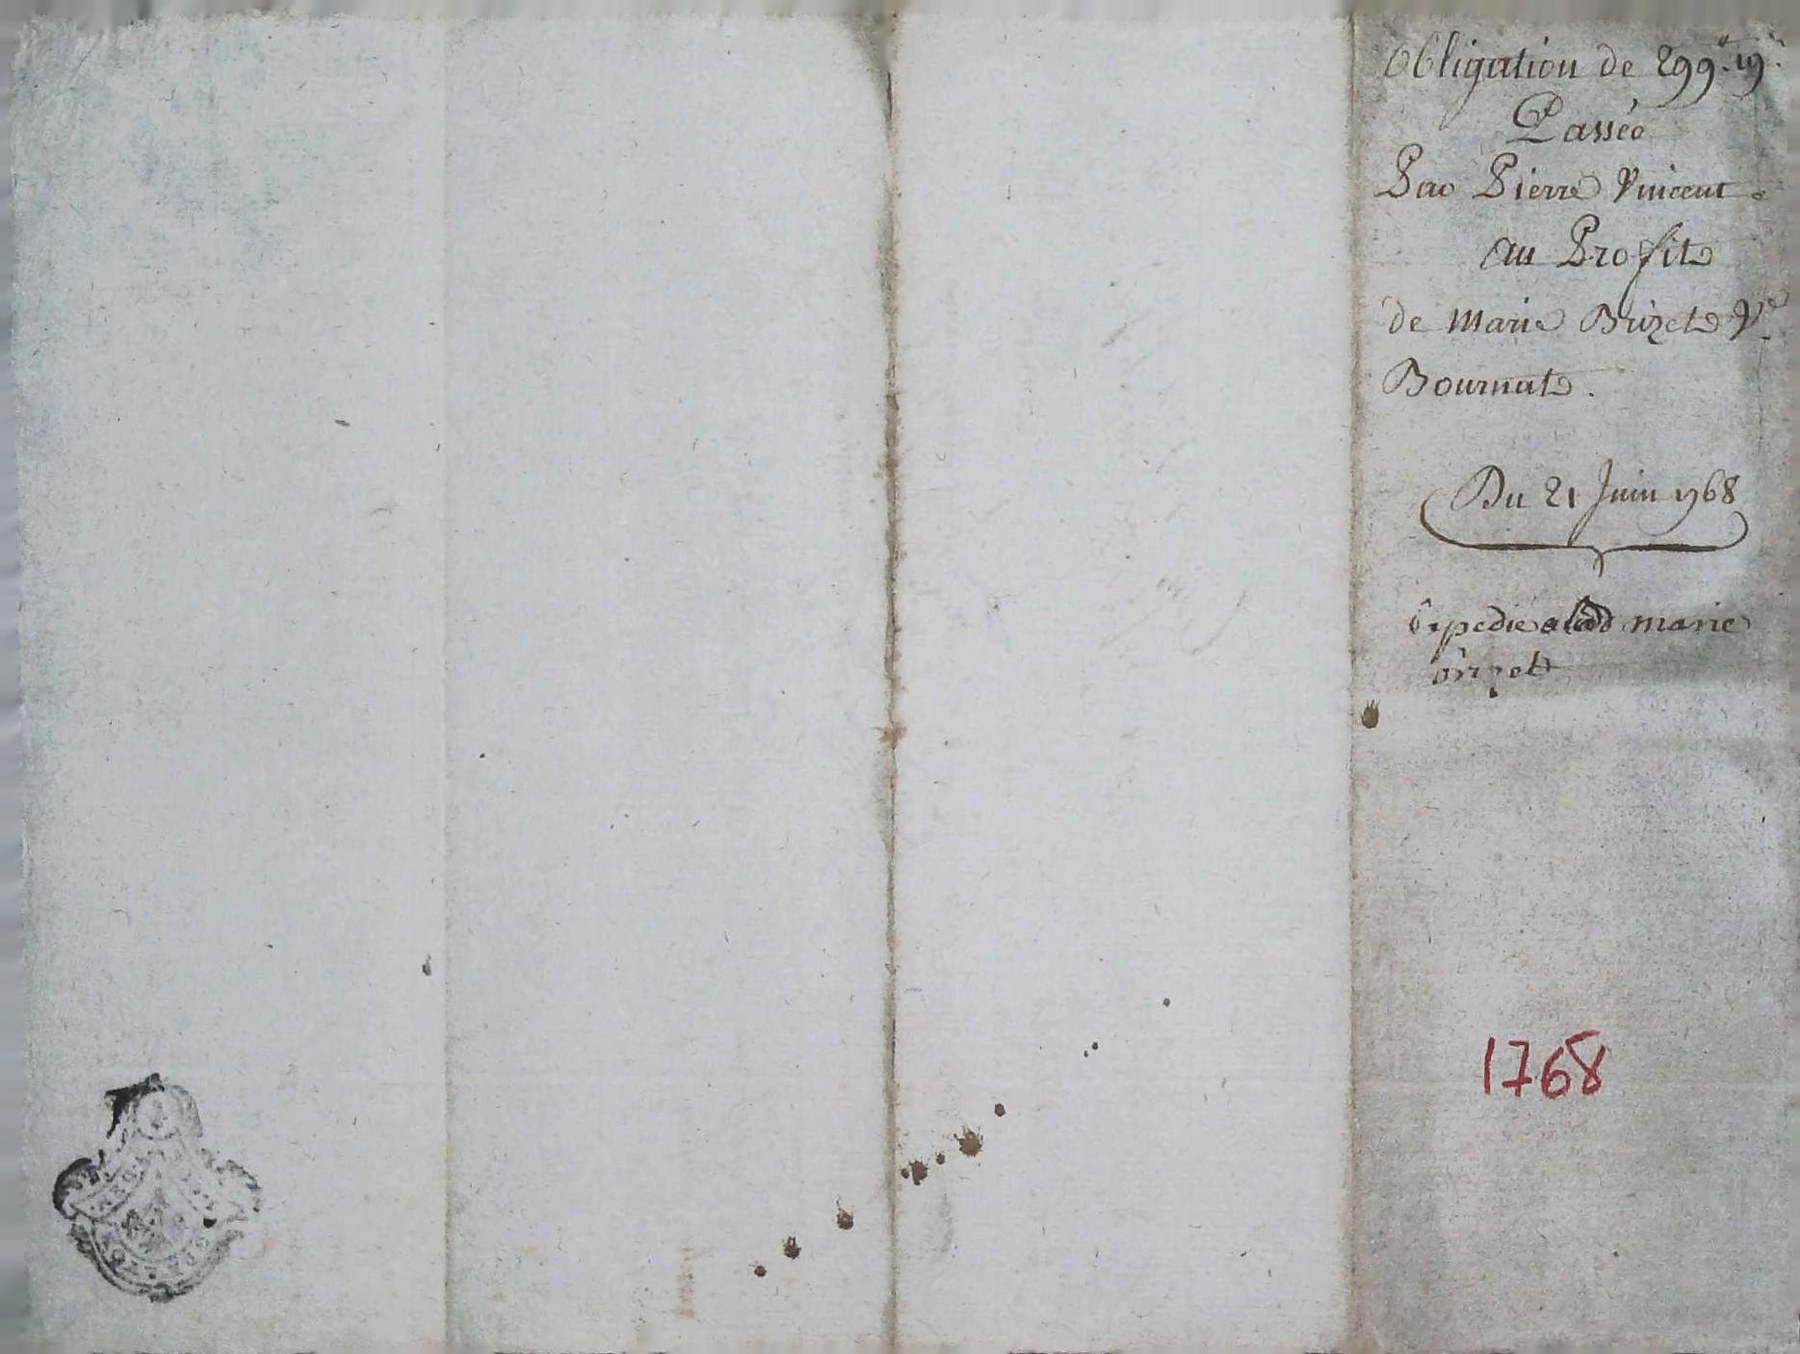 Obligation de 299.# 19.s
Passée
Par Pierre Vincent
au Profit
de Marie Brizet Ve
Bournat.
Du 21 Juin 1768
Expedie a lad marie
brizet
1768